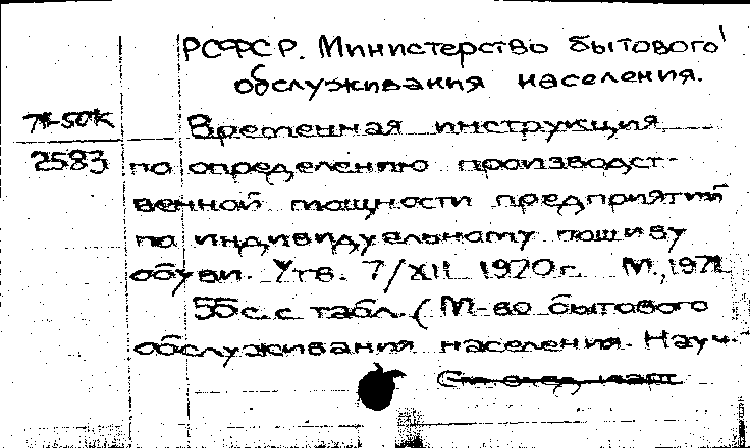 РСФСР. Министерство бытового
обслуживания населения.
71-50К
Временная инструкция
2583 по определению производст-
венной мощности предприятий
по индивидуальному пошиву
обуви. Утв. 7/XII 1970г. М., 1971
55с. с табл. (М-во бытового
обслуживания населения. Науч.-